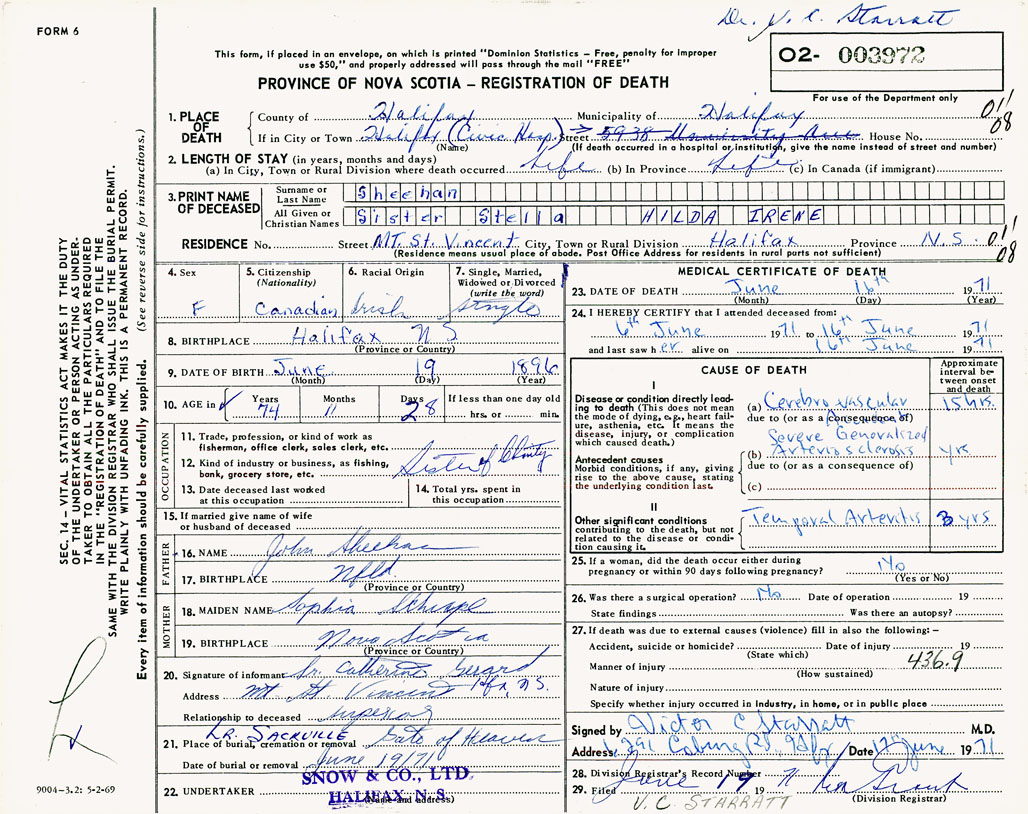 Dr. V. C. Starratt
FORM 6
This form, if placed in an envelope, on which is printed "Dominion Statistics – Free, penalty for improper
use $50," and properly addressed will pass through the mail "FREE"
PROVINCE OF NOVA SCOTIA – REGISTRATION OF DEATH
02- 003972
For use of the Department only
1. PLACE OF DEATH
County of Halifax Municipality of Halifax 011
If in City or Town Halifax (Civic Hosp.) Street 5938 University Ave House No. 08
(Name) (If death occurred in a hospital or institution, give the name instead of street and number)
2. LENGTH OF STAY (in years, months and days)
(a) In City, Town or Rural Division where death occurred Life (b) In Province Life (c) In Canada (if immigrant)
3. PRINT NAME OF DECEASED
Surname or Last Name Sheehan
All Given or Christian Names Sister Stella HILDA IRENE
RESIDENCE No. Street Mt. St. Vincent City, Town or Rural Division Halifax Province N.S. 011
(Residence means usual place of abode. Post Office Address for residents in rural parts not sufficient) 08
4. Sex F
5. Citizenship (Nationality) Canadian
6. Racial Origin Irish
7. Single, Married, Widowed or Divorced (write the word) single
8. BIRTHPLACE Halifax N S
(Province or Country)
9. DATE OF BIRTH June 19 1896
(Month) (Day) (Year)
10. AGE in Years 74 Months 11 Days 28 If less than one day old
hrs. or min.
OCCUPATION
11. Trade, profession, or kind of work as
fisherman, office clerk, sales clerk, etc.
12. Kind of industry or business, as fishing,
bank, grocery store, etc. Sister of Charity
13. Date deceased last worked
at this occupation
14. Total yrs. spent in
this occupation
15. If married give name of wife
or husband of deceased
FATHER
16. NAME John Sheehan
17. BIRTHPLACE Nfld.
(Province or Country)
MOTHER
18. MAIDEN NAME Sophia
19. BIRTHPLACE Nova Scotia
(Province or Country)
20. Signature of informant Sr. Catherine Gerard
Address Mt St Vincent Hfx, N.S.
Relationship to deceased superior
LR. SACKVILLE
21. Place of burial, cremation or removal Gate of Heaven
Date of burial or removal June 19/71
22. UNDERTAKER SNOW & CO., LTD.
HALIFAX, N. S.
(Name and address)
MEDICAL CERTIFICATE OF DEATH
23. DATE OF DEATH June 16th 1971
(Month) (Day) (Year)
24. I HEREBY CERTIFY that I attended deceased from:
6th June 1971 to 16th June 1971
and last saw her alive on 16th June 1971
CAUSE OF DEATH
Approximate interval between onset and death
I
Disease or condition directly leading to death (This does not mean the mode of dying, e.g., heart failure, asthenia, etc. It means the disease, injury, or complication which caused death.)
(a) Cerebro vascular 15 hrs.
due to (or as a consequence of)
Antecedent causes
Morbid conditions, if any, giving rise to the above cause, stating the underlying condition last.
Severe Generalized
(b) Arteriosclerosis yrs
due to (or as a consequence of)
(c)
II
Other significant conditions
contributing to the death, but not related to the disease or condition causing it.
Temporal Arteritis 3 yrs
25. If a woman, did the death occur either during
pregnancy or within 90 days following pregnancy? No
(Yes or No)
26. Was there a surgical operation? No Date of operation 19
State findings Was there an autopsy?
27. If death was due to external causes (violence) fill in also the following: –
Accident, suicide or homicide? Date of injury 19
(State which) 436.9
Manner of injury
(How sustained)
Nature of injury
Specify whether injury occurred in industry, in home, or in public place
Signed by Victor C Starratt M.D.
Address Coburg Rd. Hfx Date 17 June 1971
28. Division Registrar's Record Number
29. Filed June 19 19
(Division Registrar)
V. C. STARRATT
SEC. 14 – VITAL STATISTICS ACT MAKES IT THE DUTY
OF THE UNDERTAKER OR PERSON ACTING AS UNDER-
TAKER TO OBTAIN ALL THE PARTICULARS REQUIRED
IN THE "REGISTRATION OF DEATH" AND TO FILE THE
SAME WITH THE DIVISION REGISTRAR WHO SHALL ISSUE THE BURIAL PERMIT.
WRITE PLAINLY WITH UNFADING INK. THIS IS A PERMANENT RECORD.
Every item of information should be carefully supplied. (See reverse side for instructions.)
9004–3.2: 5-2-69